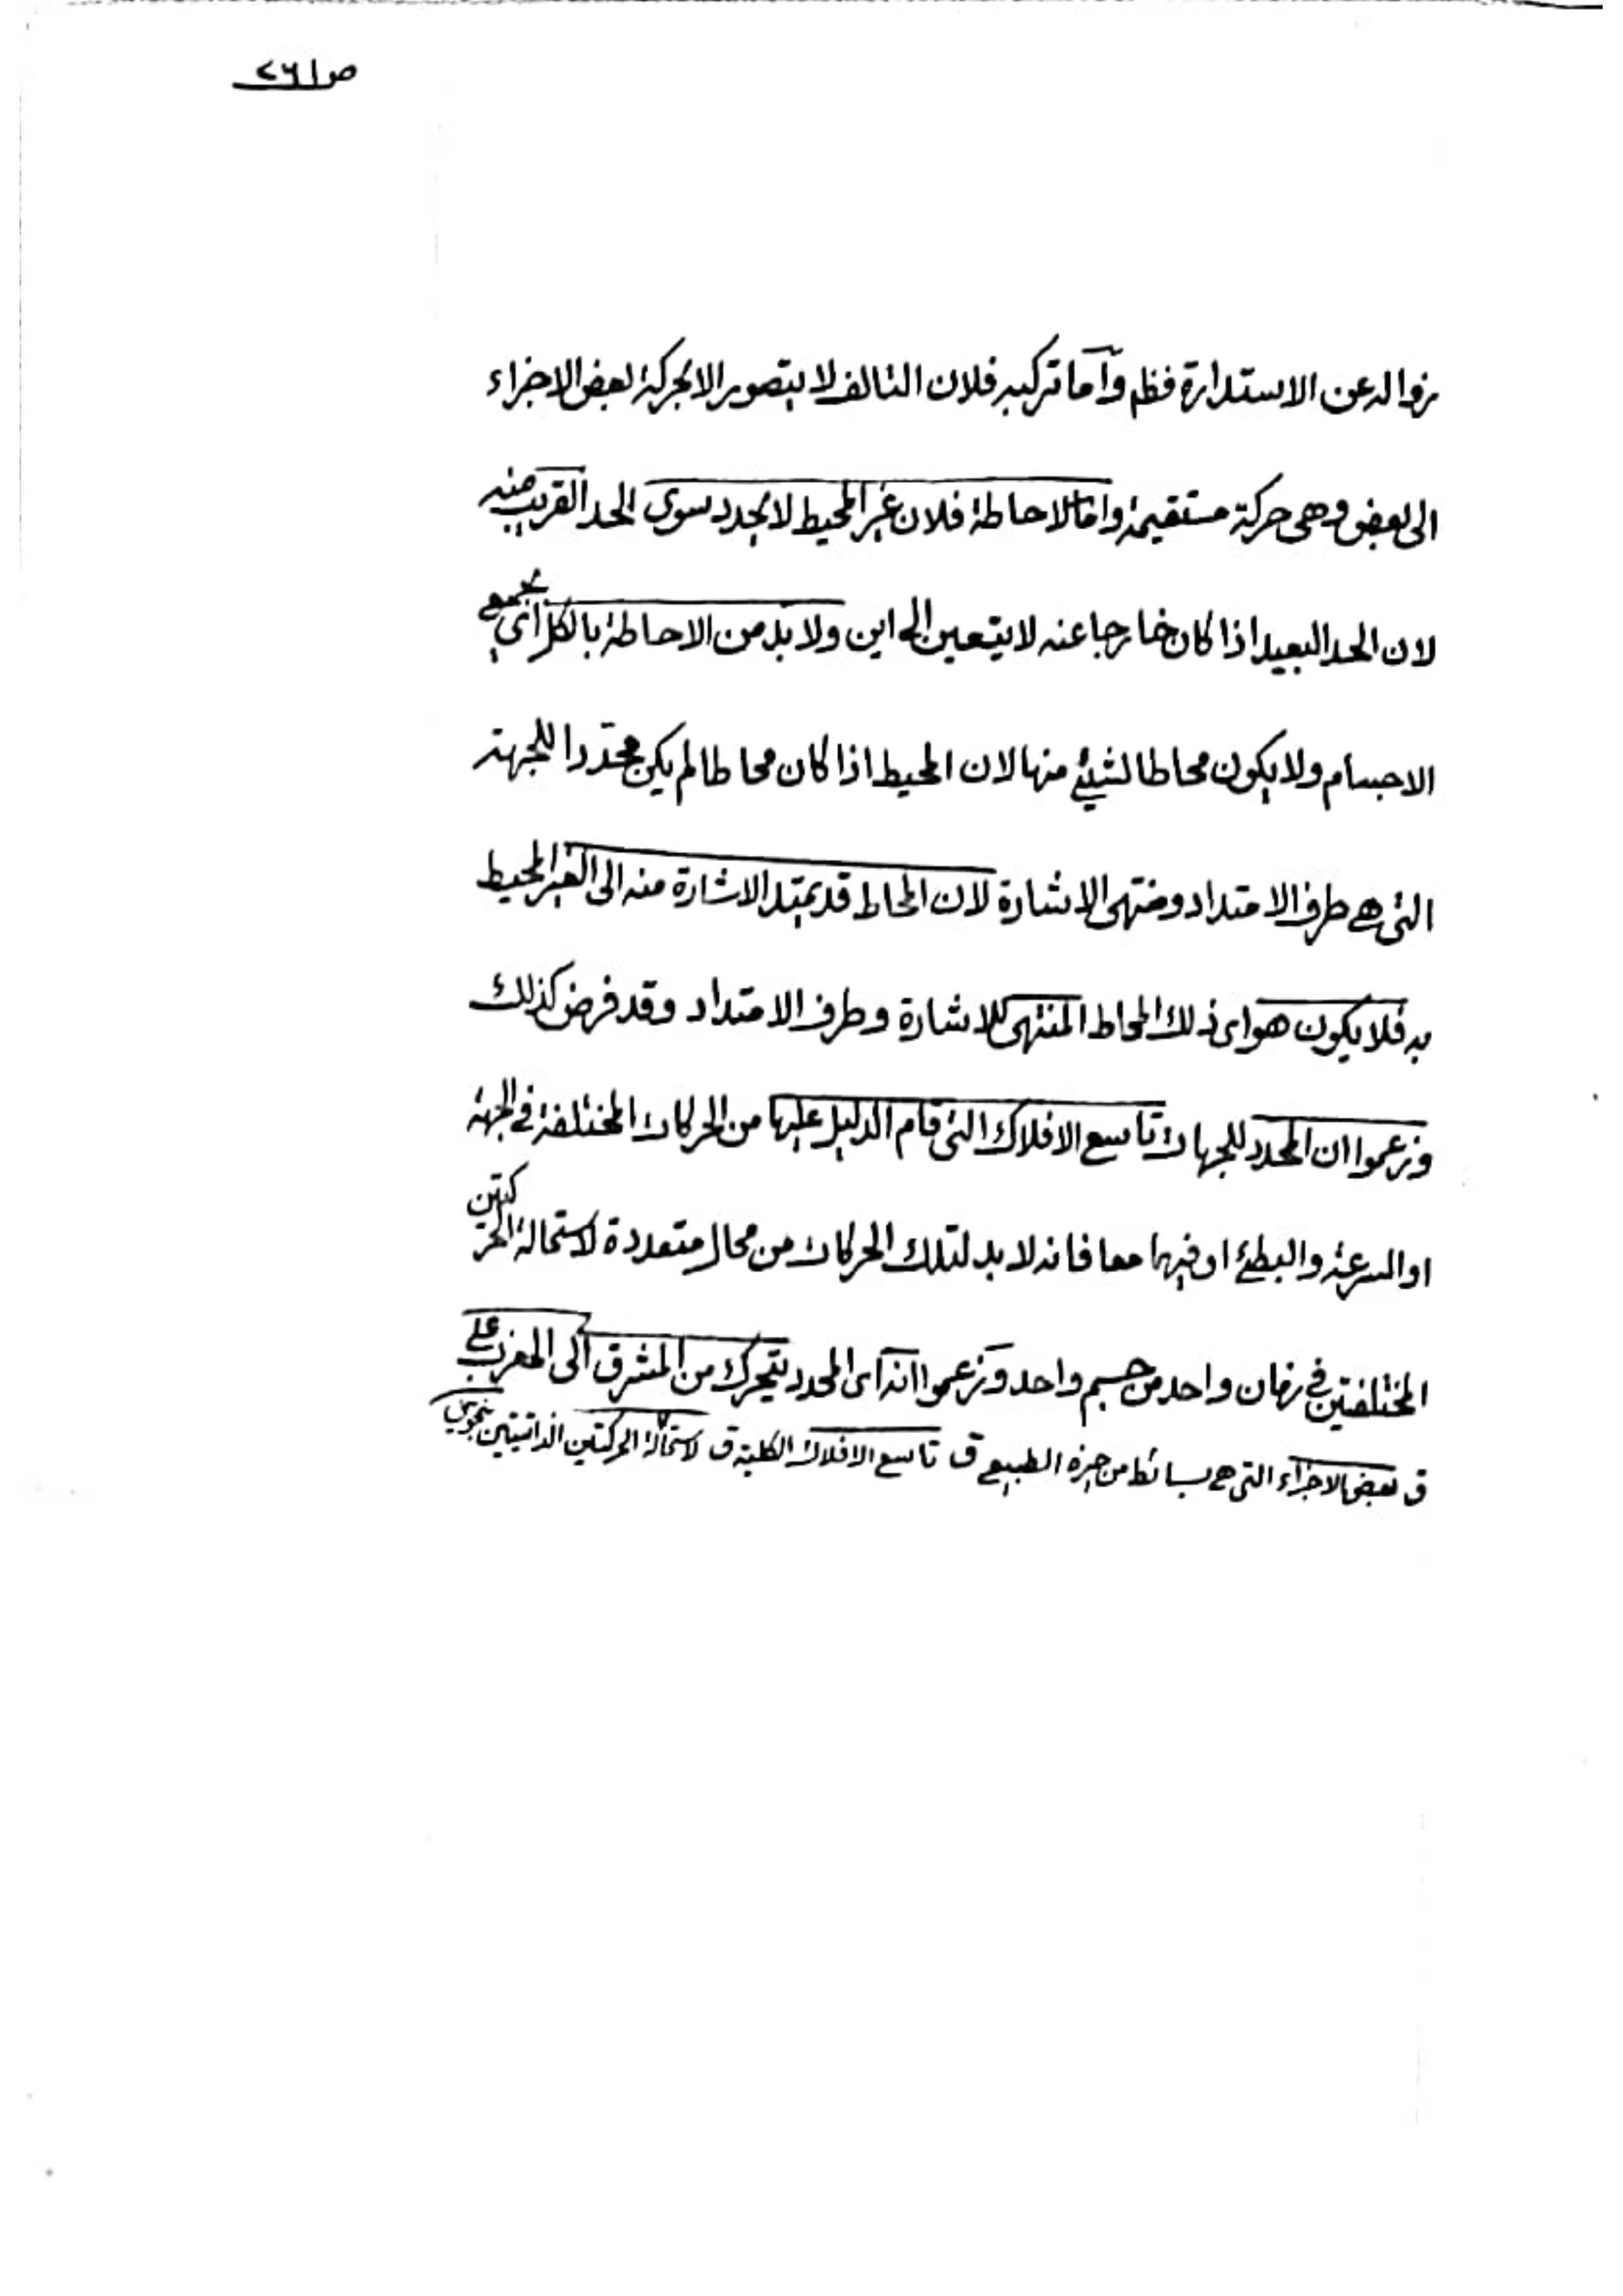 ص١٢٦
زواله عن الاستدارة فظ واما تركيبه فلان التالف لا يتصور الا بحركة لبعض الاجزاء
الى بعض وهى حركة مستقيمة واما الاحاطة فلان غير المحيط لا يحدد سوى الحد القريب منه
لان الحد البعيد اذا كان خارجا عنه لا يتعين الى اين ولا بد من الاحاطة بالكل اى بجميع
الاجسام ولا يكون محاطا لشيئ منها لان المحيط اذا كان محاطا لم يكن محددا للجهة
التى هى طرف الامتداد ومنتهى الاشارة لان المحاط قد يمتد الاشارة منه الى الغير المحيط
به فلا يكون هو اى ذلك المحاط المنتهى للاشارة وطرف الامتداد وقد فرض كذلك
وزعموا ان المحدد للجهات تاسع الافلاك التى قام الدليل عليها من الحركات المختلفة فى الجهة
او السرعة والبطئ او فيهما معا فانه لا بد لتلك الحركات من محال متعددة لاستحالة الحركتين
المختلفتين فى زمان واحد من جسم واحد وزعموا انه اى المحدد يتحرك من المشرق الى المغرب على
ق بعض الاجزاء التى هى بسائط من حيزه الطبيعى ق تاسع الافلاك الكلية ق لاستحالة الحركتين الذاتيتين